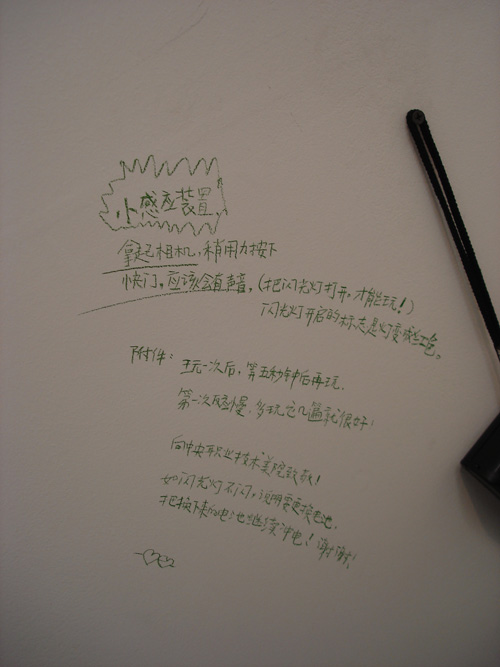 小感应装置
拿起相机，稍用力按下
快门，应该会有声音，(把闪光灯打开，才能玩！)
闪光灯开启的标志是灯变成红色。
附件：玩一次后，等五秒钟后再玩．
第一次反应慢．多玩它几遍就很好！
向中央职业技术美院致敬！
如闪光灯不闪，说明要更换电池．
把换下来的电池继续冲电！谢谢！